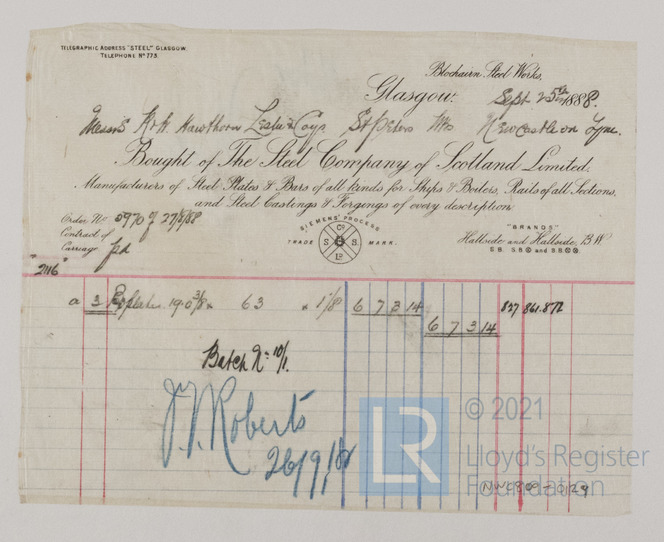 TELEGRAPHIC ADDRESS "STEEL" GLASGOW
TELEPHONE Nº 773.
Blochairn Steel Works,
Glasgow. Sept 25th 1888.
Messrs R & W. Hawthorn Leslie & Coys St Peters Wks Newcastle on Tyne.
Bought of The Steel Company of Scotland Limited.
Manufacturers of Steel Plates & Bars of all kinds for Ships & Boilers, Rails of all Sections,
and Steel Castings & Forgings of every description.
Order No 0970 of 27/8/88
Contract of
Carriage pd
SIEMENS' PROCESS
TRADE MARK.
Cº S S Lº
"BRANDS"
Hallside and Hallside, B.W.
"2116"
a 3 plates. 19.0 3/8 x 63 x 1 1/8 6 7 3 14 857 861.872
6 7 3 14
Batch No 10/1.
J. Roberts
26/9/88
LR
© 2021
Lloyd's Register
Foundation